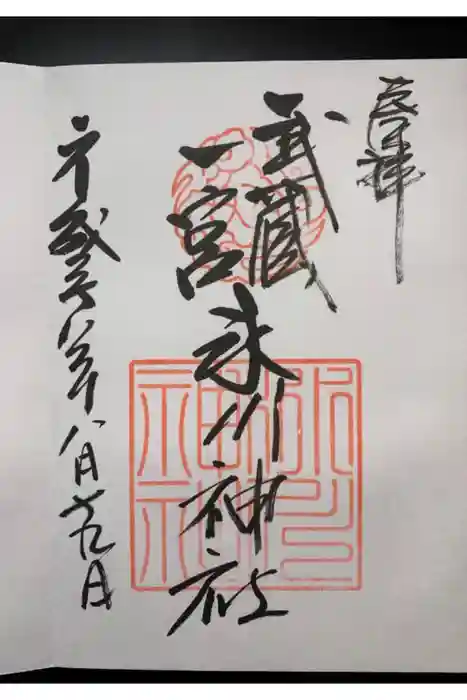 奉拝
武蔵
一宮
氷川神社
平成二十八年八月十九日
氷川
神社